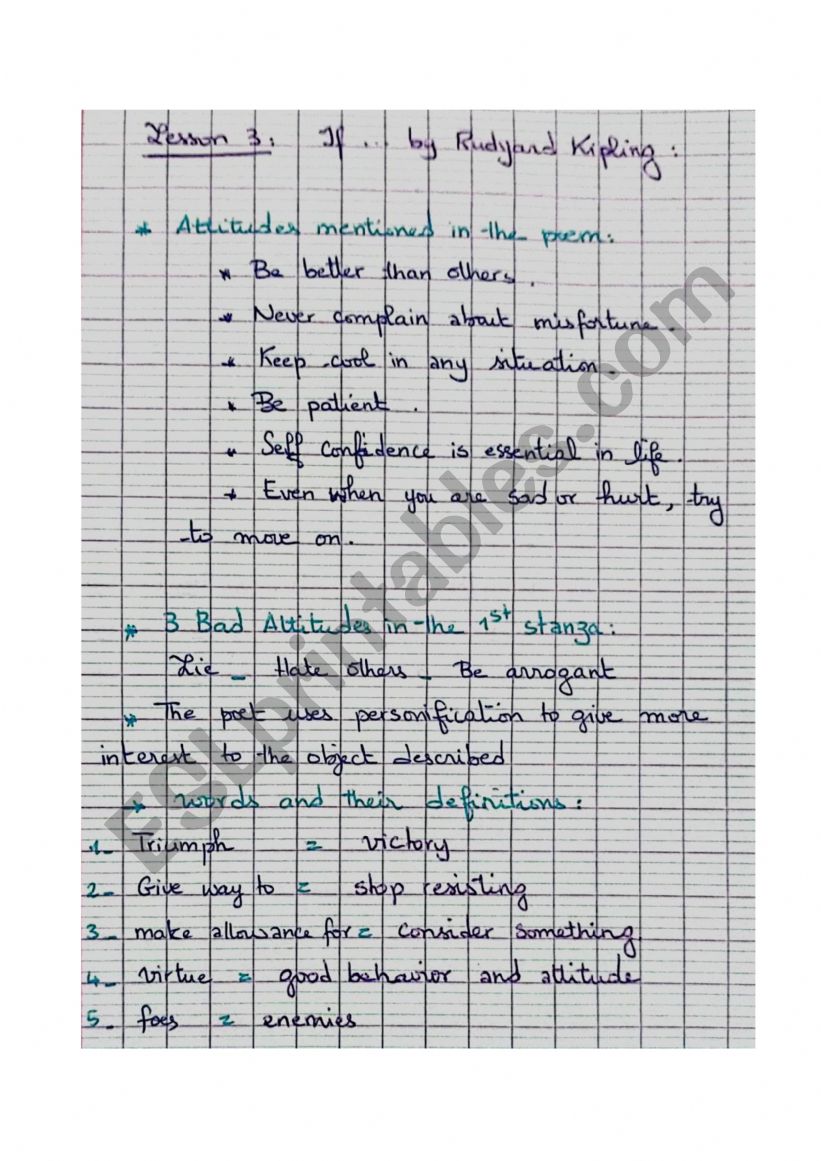 Lesson 3: If ... by Rudyard Kipling:
* Attitudes mentioned in the poem:
* Be better than others.
* Never complain about misfortune.
* Keep cool in any situation.
* Be patient.
* Self confidence is essential in life.
* Even when you are sad or hurt, try
to move on.
* 3 Bad Attitudes in the 1st stanza:
Lie _ Hate others _ Be arrogant
* The poet uses personification to give more
interest to the object described
* words and their definitions:
1- Triumph = victory
2- Give way to = stop resisting
3- make allowance for = consider something
4- virtue = good behavior and attitude
5- foes = enemies
ESLprintables.com